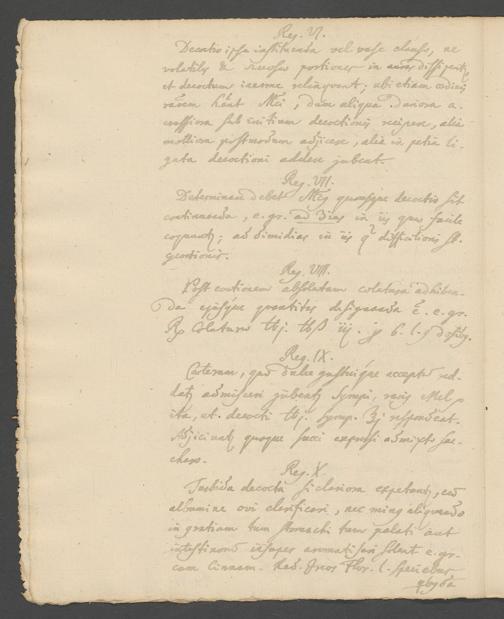 Reg. VI.
Decoctio ipsa instituenda vel vase clauso, ne
volatiles & portiones in auras
et decoctum inerme relinquent, ubi etiam ordinis
habent Mci, dum aliqua duriora a.
crassiora sub initium decoctionis recipere, alia
molliora postmodum adjicere, alia in petia li-
gata decoctioni addere jubent.
Reg. VII.
Determinari debet quousque decoctio sit
continuanda, e. gr. ad 3ias in iis quae facile
coquuntur; ad dimidias in iis difficilioris
Reg. VIII.
Post coctionem absolutam colatura adhiben-
da ejusque quantitas designanda e. gr.
Colaturae
Reg. IX.
Caeterum, quo dulce gustuique acceptum red-
datur admisceri jubentur Syrupi, raris Mel
ita, ut decocti respondeat.
Adjiciuntur quoque succi expressi admixto sac-
charo.
Reg. X.
Turbida decocta si clariora expetantur,
albumine ovi clarificari, nec minus aliquando
in gratiam tum stomachi tum palati aut
intestinorum insuper aromatisari solent e. gr.
cum Cinnam. Rad. Ireos Flor. l. speciebus